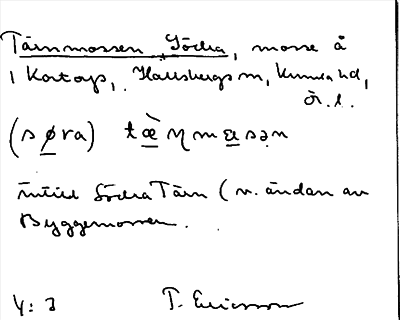 Tärnmossen, Södra, mosse å
1 Kartogr., Hallsbergs sn, Kumla hd,
Ör. l.
(søra) tæ̀ŋmɑsən
intill Södra Tärn (n. ändan av
Byggemossen.
4: 3 T. Ericsson